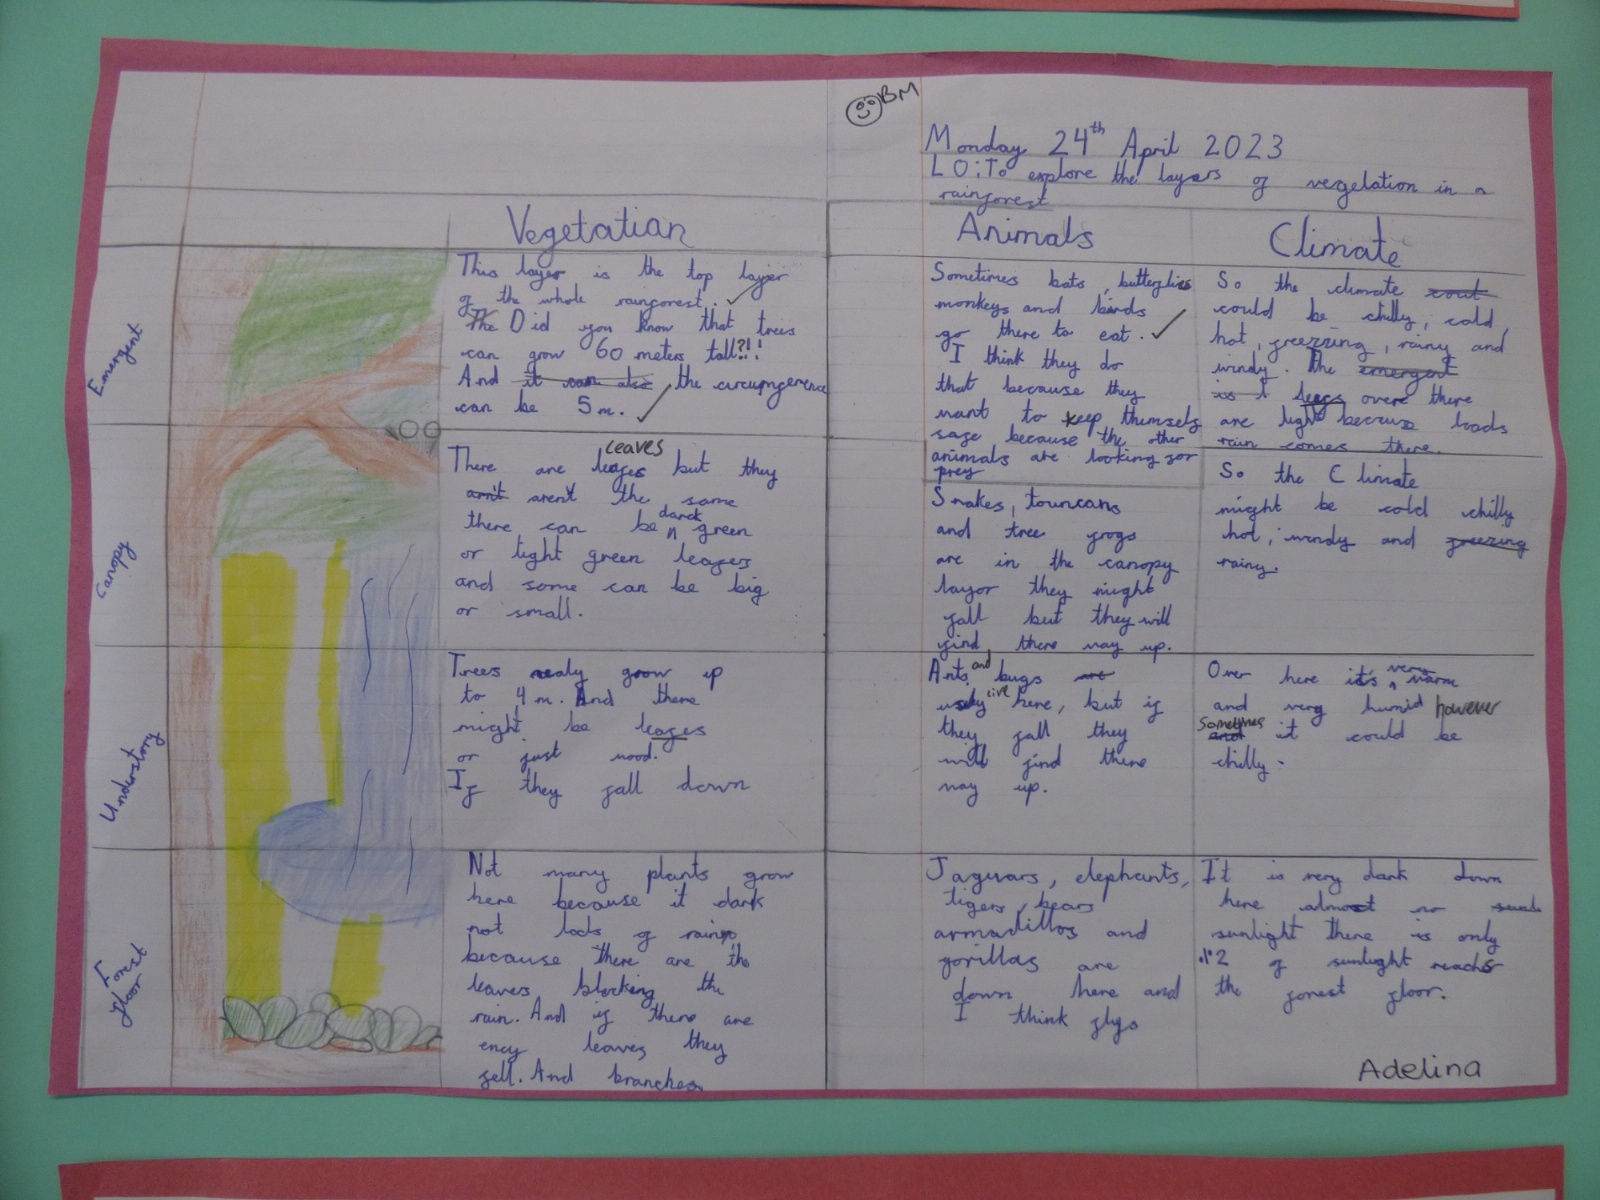 BM
Monday 24th April 2023
LO: To explore the layers of vegelation in a
rainforest
Vegetatian
Animals
Climate
Emergent
This layer is the top layer
of the whole rainforest.
The Did you know that trees
can grow 60 meters tall?!!
And it can also the circumference
can be 5m.
Sometimes bats, butterflies
monkeys and birds
go there to eat.
I think they do
that because they
want to keep themself
safe because the other
animals are looking for
prey
So the climate cout
could be chilly, cold,
hot, freezring, rainy and
windy. The emergent
is t leegs overe there
are light becerus loads
rain comes there.
Canopy
leaves
There are leafes but they
arn't aren't the same
there can be darck green
or light green leafes
and some can be big
or small.
Snakes, touncans
and tree frogs
are in the canopy
layor they might
fall but they will
find there way up.
So the Climate
might be cold chilly
hot, windy and freezing
rainy.
Understory
Trees realy grow up
to 4m. And there
might be leafes
or just wood.
If they fall down
Ants and bugs are
usely live here, but if
they fall they
will find there
way up.
Over here it's very warm
and very humid however
Sometimes
and it could be
chilly.
Forest
floor
Not many plants grow
here because it dark
not lots of rain
because there are the
leavers blocking the
rain. And if there are
eney leaves they
fell. And branches
Jaguars, elephants,
tigers, bears
armadillos and
gorillas are
down here and
I think flys
It is very dark down
here almost no
sunlight there is only
.12 of sunlight reachs
the forest floor.
Adelina